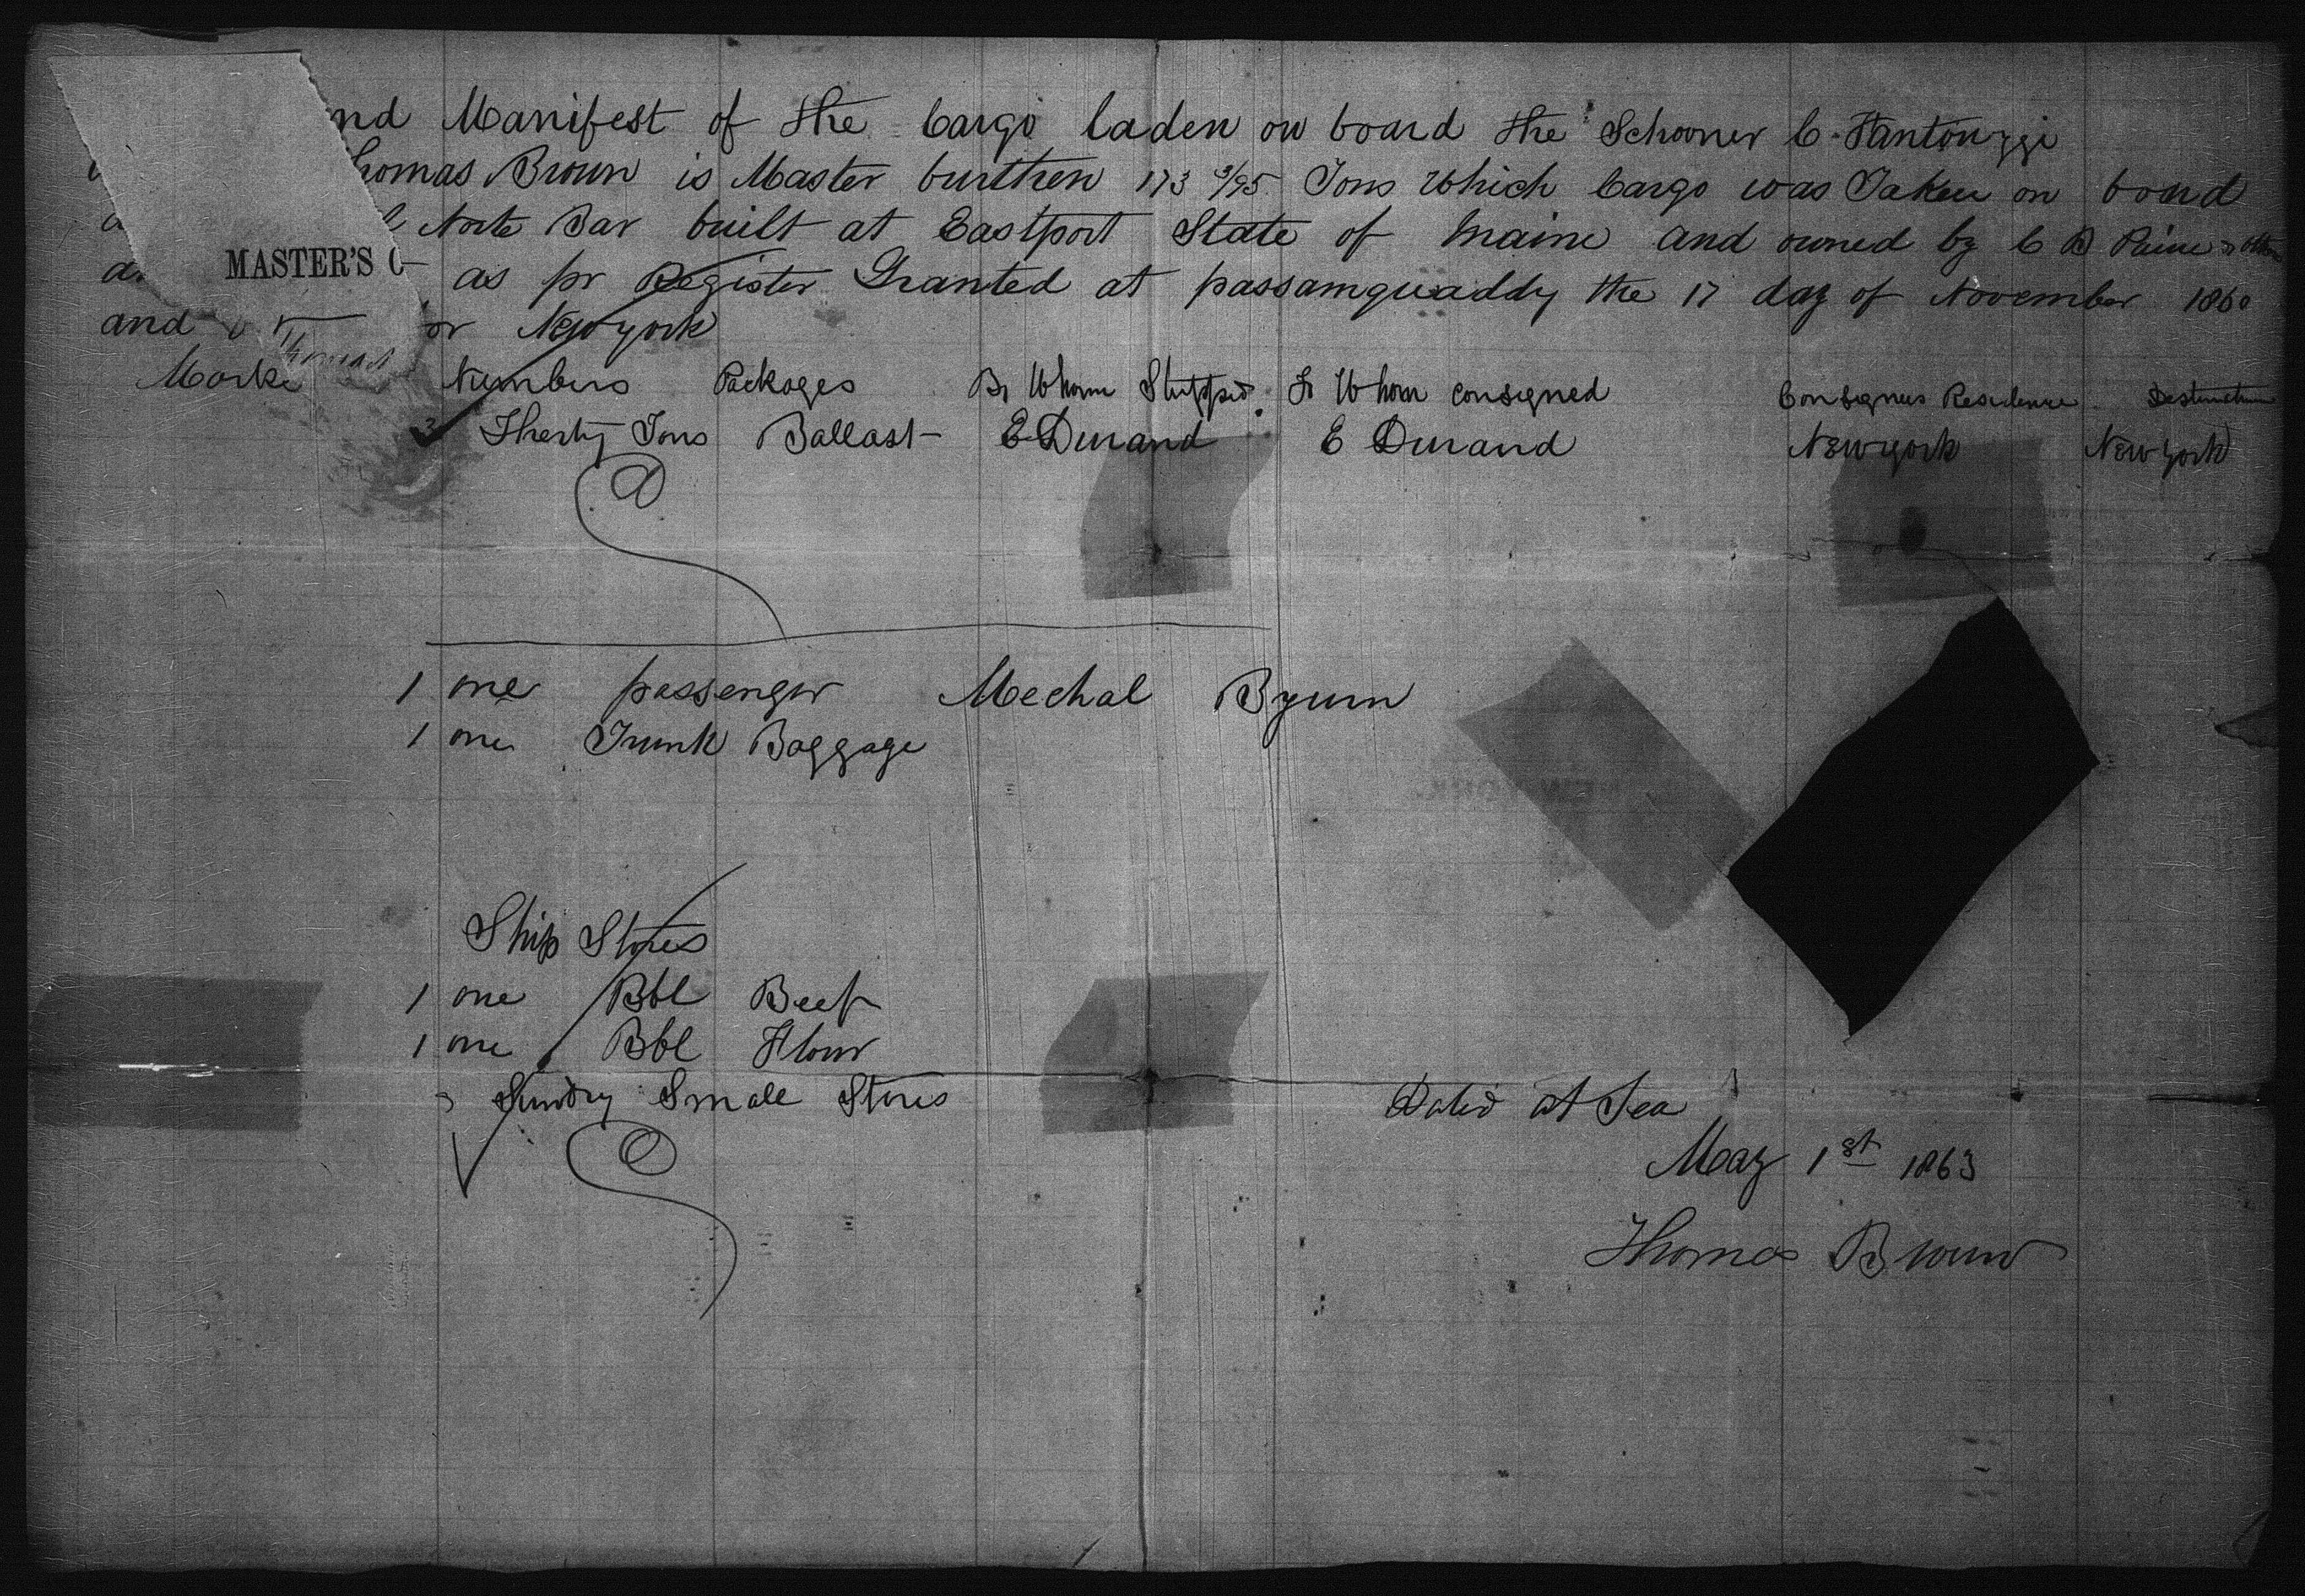 nd Manifest of the Cargo laden on board the Schooner C. Fantonzzi
homas Brown is Master burthen 173 9/95 Tons Which Cargo was Taken on board
Norte Bar built at Eastport State of Maine and owned by C B Paine & others
MASTER'S
as pr Register Granted at passamquaddy the 17 day of November 1860
and or New york
Thomas
Marks Numbers Packages By Whom Shipped To Whom consigned Consignees Residence Destination
Therty Tons Ballast E Durand E Durand New york New york
1 one passenger Mechal Byurn
1 one Trunk Baggage
Ship Stores
1 one Bbl Beef
1 one Bbl Flour
Sundry Small Stores
Dated at Sea
May 1st 1863
Thomas Brown